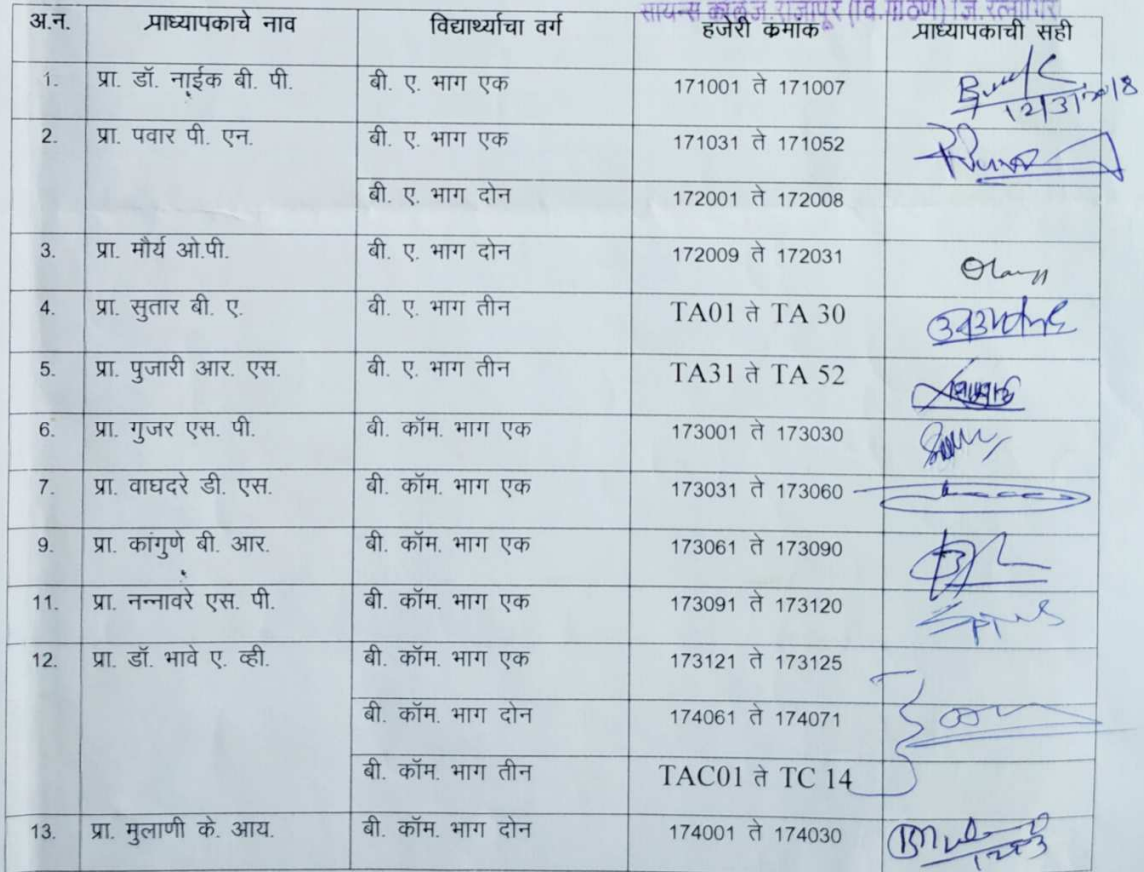 सायन्स कॉलेज, राजापूर (वि.गोठणे) जि. रत्नागिरी
अ.न. प्राध्यापकाचे नाव विद्यार्थ्याचा वर्ग हजेरी कमांक प्राध्यापकाची सही
1. प्रा. डॉ. नाईक बी. पी. बी. ए. भाग एक 171001 ते 171007
12/3/2018
2. प्रा. पवार पी. एन. बी. ए. भाग एक 171031 ते 171052
बी. ए. भाग दोन 172001 ते 172008
3. प्रा. मौर्य ओ.पी. बी. ए. भाग दोन 172009 ते 172031
4. प्रा. सुतार बी. ए. बी. ए. भाग तीन TA01 ते TA 30
5. प्रा. पुजारी आर. एस. बी. ए. भाग तीन TA31 ते TA 52
6. प्रा. गुजर एस. पी. बी. कॉम. भाग एक 173001 ते 173030
7. प्रा. वाघदरे डी. एस. बी. कॉम. भाग एक 173031 ते 173060
9. प्रा. कांगुणे बी. आर. बी. कॉम. भाग एक 173061 ते 173090
11. प्रा. नन्नावरे एस. पी. बी. कॉम. भाग एक 173091 ते 173120
12. प्रा. डॉ. भावे ए. व्ही. बी. कॉम. भाग एक 173121 ते 173125
बी. कॉम. भाग दोन 174061 ते 174071
बी. कॉम. भाग तीन TAC01 ते TC 14
13. प्रा. मुलाणी के. आय. बी. कॉम. भाग दोन 174001 ते 174030